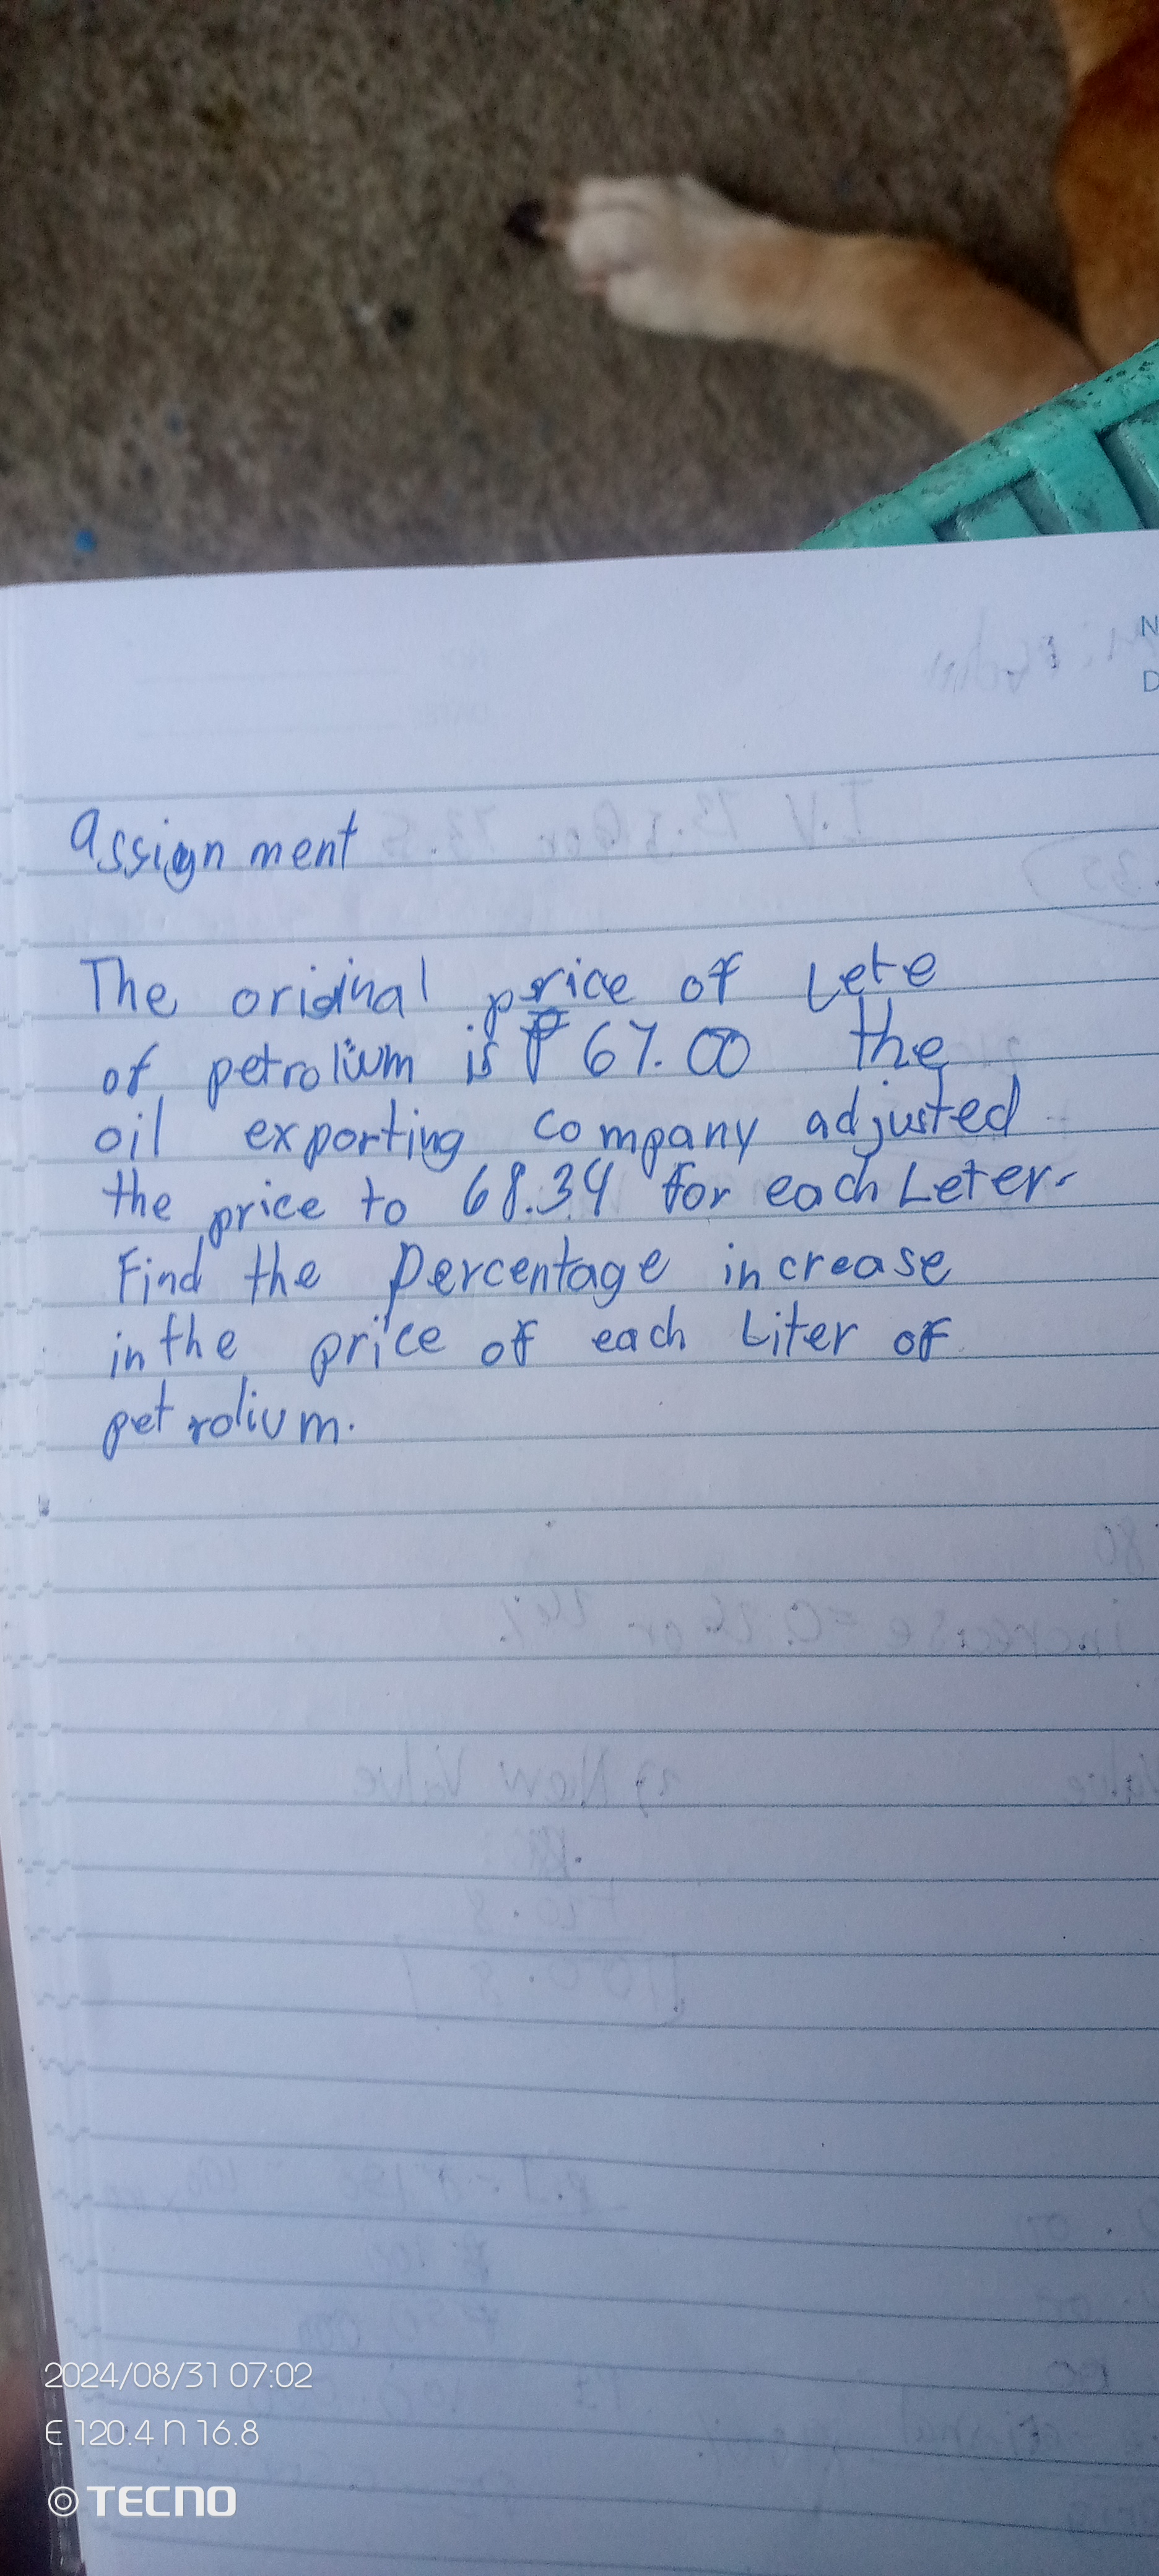 N
D
Assignment
The original price of Lete
of petrolium is ₱ 67.00 the
oil exporting company adjusted
the price to 68.34 for each Leter.
Find the Percentage increase
in the price of each Liter of
petrolium.
2024/08/31 07:02
E 120.4 N 16.8
TECNO